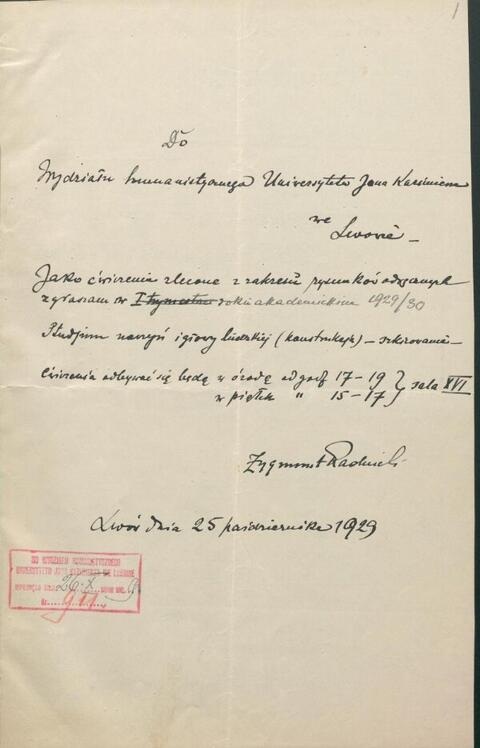 1
Do
Wydziału humanistycznego Uniwersytetu Jana Kazimierza
we
Lwowie
Jako ćwiczenia zlecone z zakresu rysunków odręcznych
zgłaszam w I trymestrze roku akademickim 1929/30
Studjum naczyń i głowy ludzkiej (konstrukcja) – szkicowanie –
Ćwiczenia odbywać się będą w środę od godz 17 – 19 } sala XVI
w piątek " 15 – 17 }
Zygmunt
Lwów dnia 25 października 1929
DO WYDZIAŁU HUMANISTYCZNEGO
UNIWERSYTETU JANA KAZIMIERZA WE LWOWIE
26. X